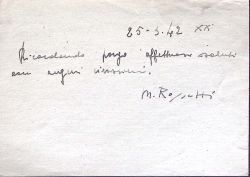 25-3.42 XX
Ricordando porgo affettuosi saluti
con auguri vivissimi.
M. Rossetti